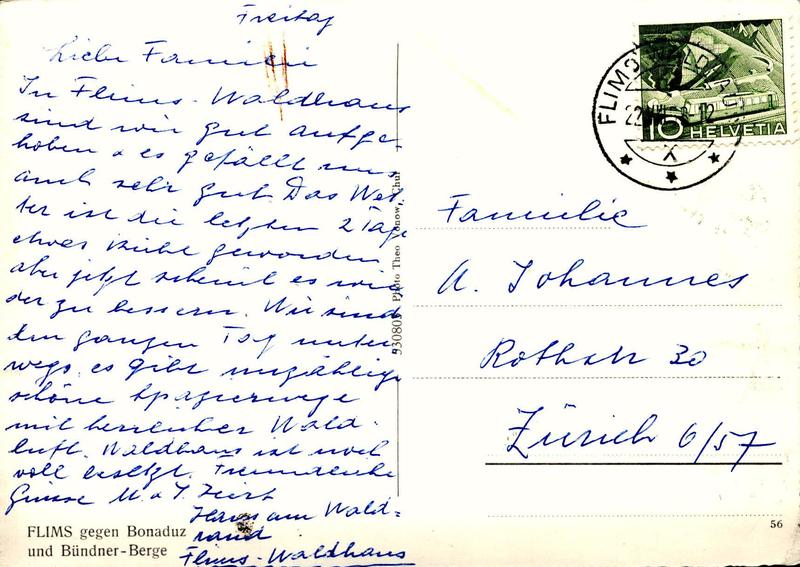 Freitag
Liebe Familie
In Flims-Waldhaus
sind wir gut aufge-
hoben & es gefällt uns
auch sehr gut Das Wet-
ter ist die letzten 2 Tage
etwas kühl geworden
aber jetzt scheint es wie
der zu bessern. Wir sind
den ganzen Tag unter
wegs, es gibt unzählige
schöne Spazierwege
mit herrlicher Wald-
luft. Waldhaus ist noch
voll besetzt. Freundliche
Grüsse M. & J.
Haus am Wald=
rand
Flims-Waldhaus
FLIMS gegen Bonaduz
und Bündner-Berge
930805 Photo Theo Chur
FLIMS WALDHAUS
22
12
10 HELVETIA
Familie
A. Johannes
Rothstr 30
Zürich 6/57
56